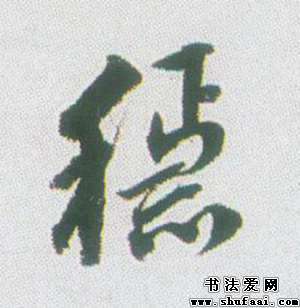 穩
书法爱网
www.shufaai.com